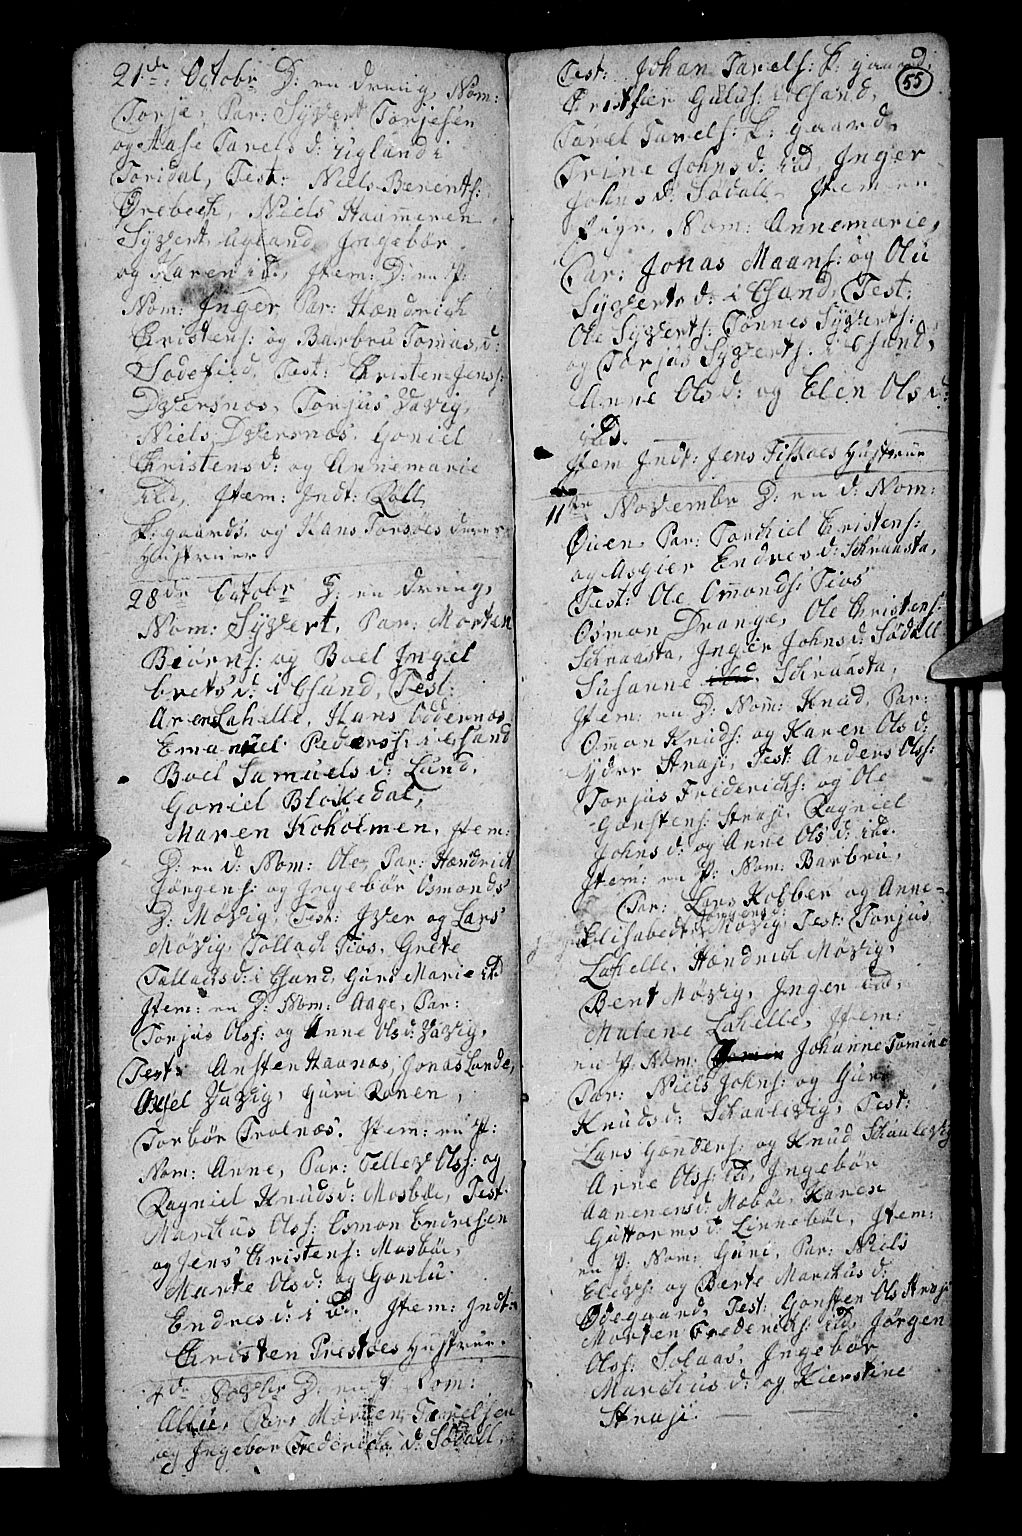 21de Octobr D: en dreng, Nom:
Torje, Par: Syvert Torjesen
og Aase Tarels d: Ugland i
Toridal, Test: Niels Berents:
Ørebech, Niels Haumeren
Syvert Ugland, Ingebør
og Karen ibd, Item: D: en P:
Nom: Inger, Par: Hendrich
Christens: og Barbru Tomas d:
Sodefied, Test: Christen Jens:
Dversnos, Torjus Vavig,
Niels Dversnos, Goniel
Christens d: og Annemarie
ibd, Item: Indt: Roll
K: gaards, og Hans Torsøes deres
Hustruer
28de Octobr D: en dreng,
Nom: Syvert, Par: Morten
Beiorns: og Boel Ingel
brets d: i Chsand, Test:
Aren Lahelle, Hans Oddernes
Emanuel Peders: i Chsand
Boel Samuels d: Lund,
Goniel Blokedal,
Maren Koholmen, Item:
D: en d: Nom: Ole, Par: Hendrich
Jørgens: og Ingebør Osmonds
D: Møvig, Test: Iver og Lars
Møvig, Tollach Fios, Grete
Tallachs d: i Chsand, Guri Marie ibd
Item: en D: Nom: Aage, Par:
Torjus Ols: og Anne Ols d: Vavig,
Test: Ansten Haanes, Jonas Lunde,
Axel Vavig, Guri Ronen,
Torbør Trolnes. Item: en P:
Nom: Anne, Par: Tellev Ols: og
Ragniel Knuds d: Mosbøe, Test:
Marcus Ols: Osmon Endresen
og Jens Christens: Mosbøe,
Marte Ols d: og Gonlu
Endres d: i bd. Item: Indt:
Christen Prestøes Hustrue.
4de Novbr D: en P Nom:
Allie, Par: Morten Tarielsen
og Ingebor Frederichs d: Sodall,
55
Test: Johan Tarels: K: gaard,
Cristfer Gulus: Chsand,
Tarel Tarels: K: gaard,
Trine Johns d: ibd, Inger
Johns d: Sodall Item en
Pige, Nom: Annemarie,
Par: Jonas Maans: og Olu
Syverts d: i Chsand, Test:
Ole Syverts: Tønnes Syverts:
og Torjus Syverts: i Chsand,
Anne Ols d: og Elen Ols d:
ibd.
Item Indt: Jens Fiskaaes Hustrue
11te Novembr D: en d: Nom:
Øuen, Par: Torkiel Cristens:
og Asgier Endres d: Schraasta,
Test: Ole Omonds: Fios
Osmon Drange, Ole Christens:
Schraasta, Inger Johns d: Sødall
Susanne Schraasta,
Item: en D: Nom: Knud, Par:
Omon Knuds: og Karen Ols d:
Yder Straji, Test: Anders Ols:
Torjus Frederichs: og Ole
Gonstens: Straji, Ragniel
Johns d: og Anne Ols d: ibd.
Item: en P: Nom: Barbru,
Par: Lars Kobber og Anne-
Elisabet Jørgens d: Møvig, Test: Torjus
Lahelle, Hendrich Møvig,
Bent Møvig, Inger ibd,
Malene Lahelle, Item:
en P: Nom: Johanne Tomine
Par: Niels Johns: og Guri
Knuds d: Schaalevig, Test:
Lars Gonders: og Knud Schaalevig
Arne Ols: ibd, Ingebør
Aanens d: Mobøe, Karen
Guttorms d: Linnebøe, Item:
en P: Nom: Guni, Par: Niels
Elevs: og Berte Marchus d:
Ødegaard, Test: Gonsten Ols Straji
Morten Frederichs: ibd, Jørgen
Ols: Solaas, Ingebør
Marchus d: og Kierstine
Straji.